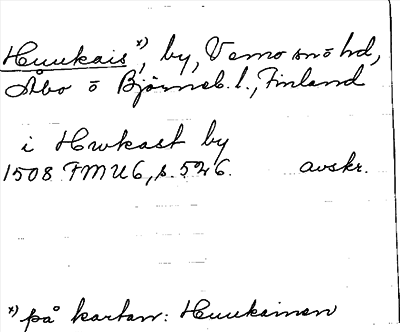 Huukais*), by, Vemo snö hd,
Åbo o Björneb. l., Finland
i Hwkast by
1508 FMU6, s. 526. avskr.
*) på kartan: Huukainen